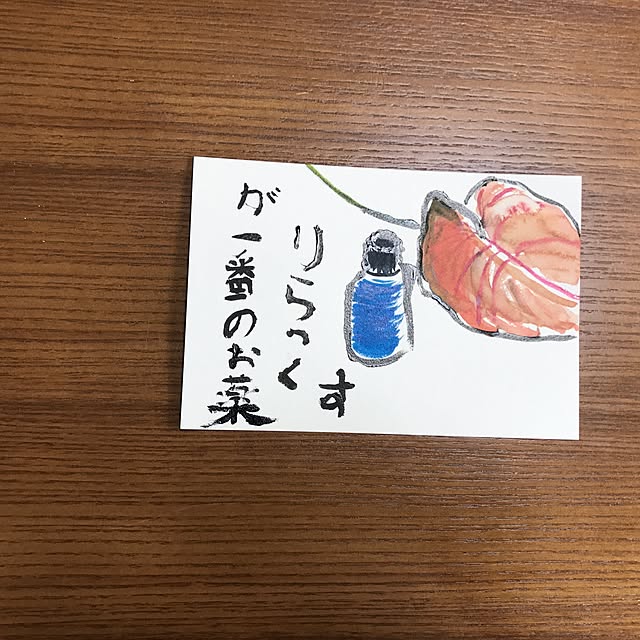 りらっくす
が一番のお薬